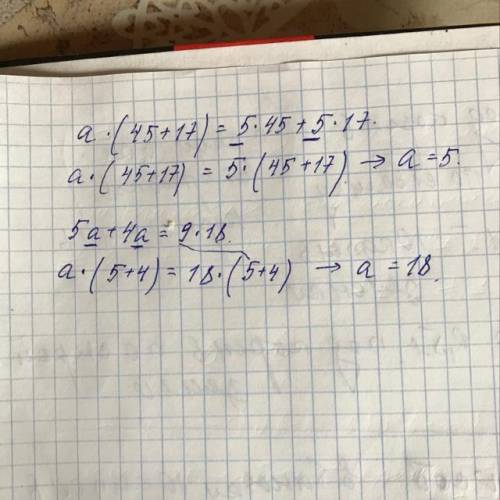 a·(45+17) = 5·45+5·17.
a·(45+17) = 5·(45+17) → a=5.
5a+4a = 9·18.
a·(5+4) = 18·(5+4) → a = 18.